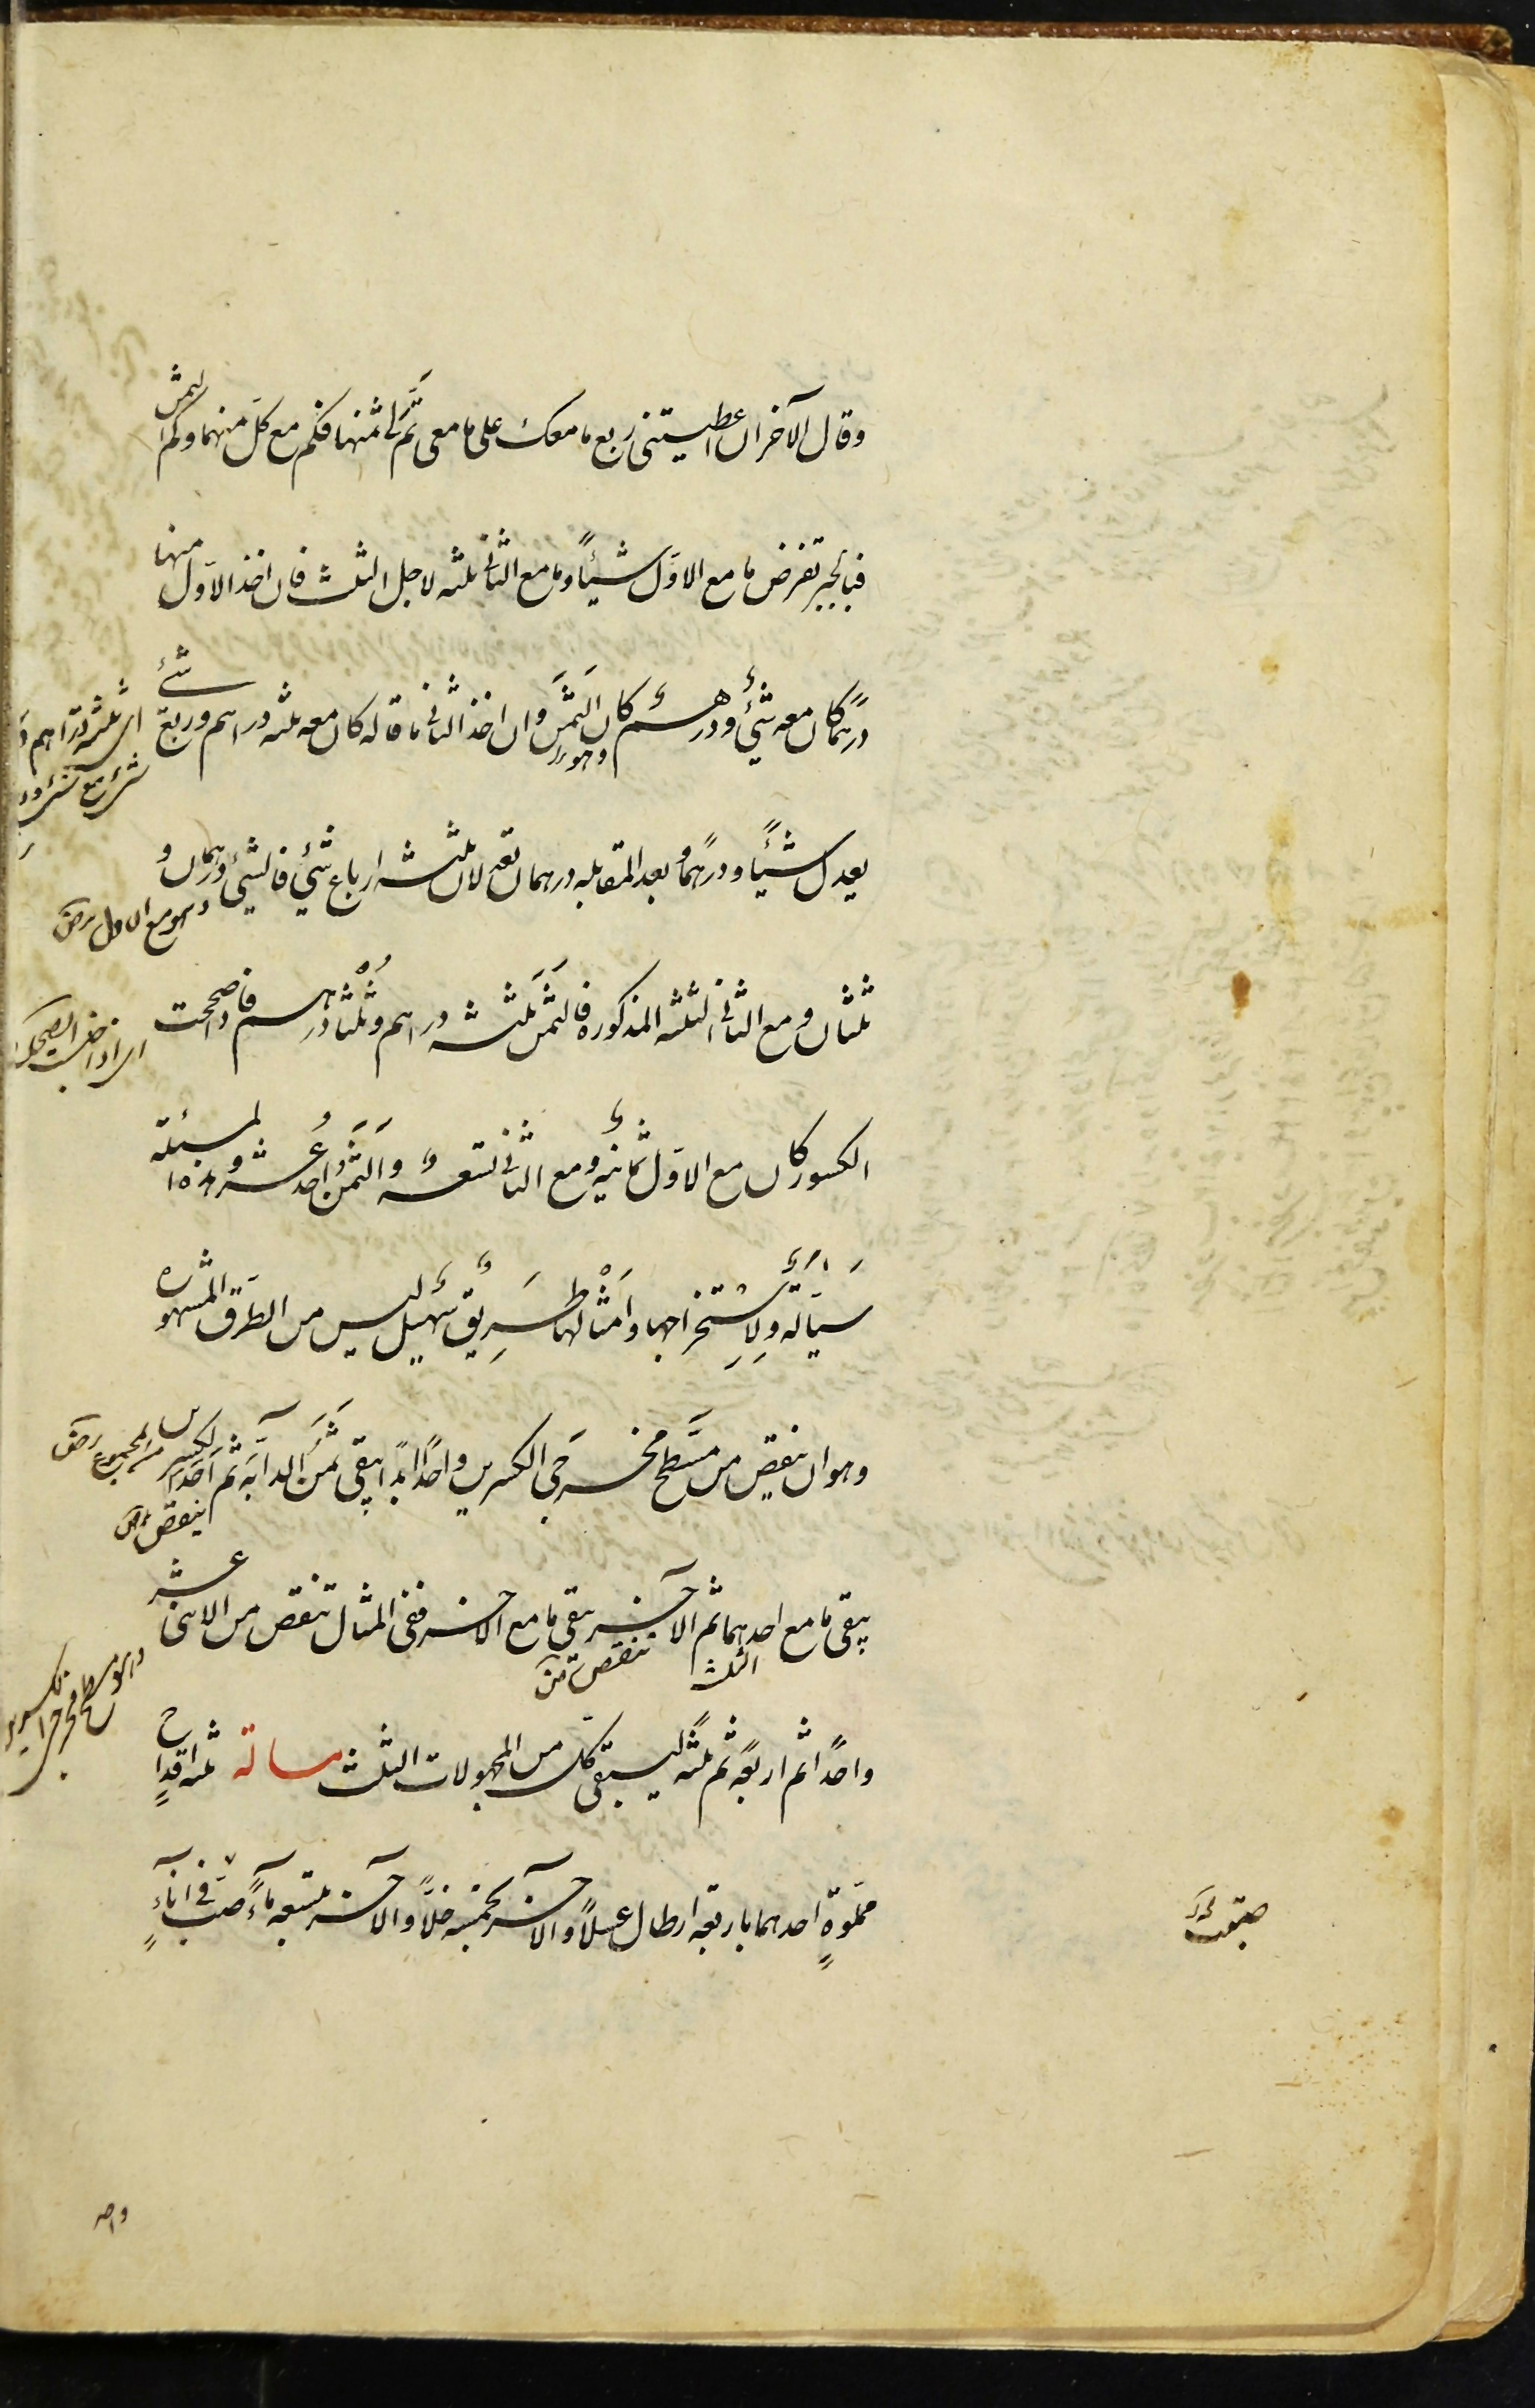 وقال الآخر ان اعطيتنى ربع مامعك على مامعى تم لى ثمنها فكم مع كل منهما وكم الثمن
فبالجبر تفرض ما مع الاول شيئاً وما مع الثانى ثلثه لاجل الثلث فان اخذ الاول منها
درهما كان معه شئ ودرهم وهو كان الثمن وان اخذ الثانى ما قاله كان معه ثلثه دراهم وربع شئ
اى ثلثه دراهم
يعدل شيئاً ودرهماً وبعد المقابله درهمان تعدلان ثلثه ارباع شئ فالشئ درهمان و
وهو مع الاول
ثلثان ومع الثانى الثلثه المذكوره فالثمن ثلثه دراهم وثلثا درهم فاذا صححت
الكسور كان مع الاول ثمانيه ومع الثانى تسعه والثمن احد عشر وهذه المسئلة
سيالة ولاستخراجها وامثالها طريق سهيل ليس من الطرق المشهوره
وهو ان ينقص من مسطح مخرجى الكسرين واحداً ابداً يبقى ثمن الدابه ثم احد الكسرين
من المخرج
ينقص
يبقى ما مع احدهما ثم الآخر يبقى ما مع الآخر ففى المثال تنقص من الاثنى عشر
وهو مسطح مخرجى الكسرين
واحداً ثم اربعه ثم ثلثه ليبقى كل من المجهولات الثلث مسالة ثلثه اقداح
مملوة احدهما باربعه ارطال عسلاً والآخر بخمسه خلاً والآخر بتسعه ماءً صبت فى اناءٍ
واحد